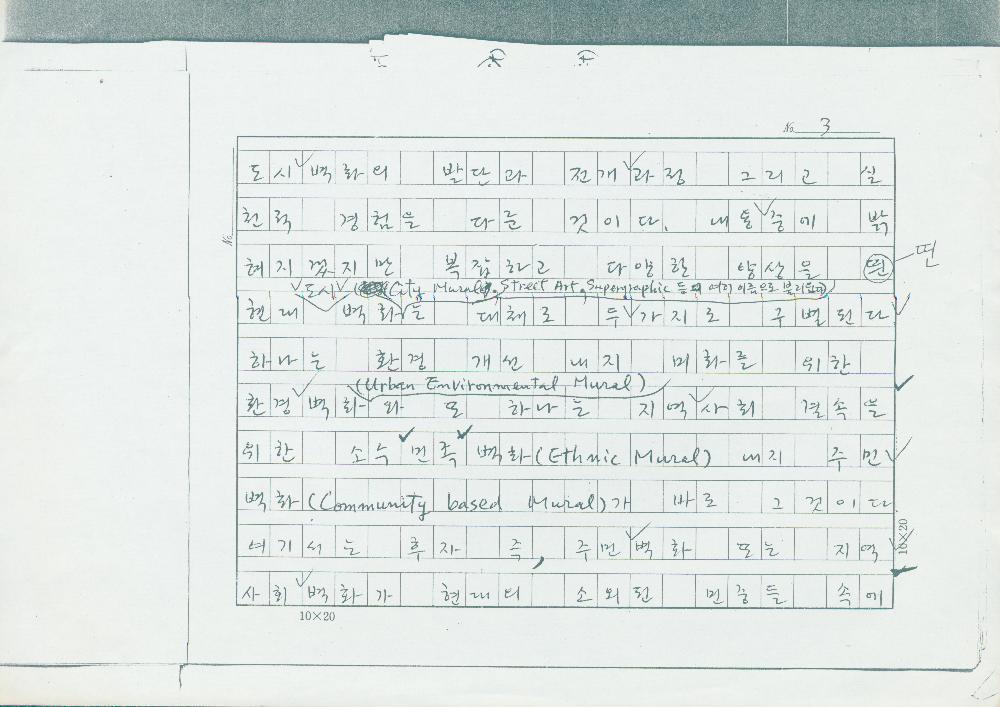 No. 3
도시벽화의 발단과 전개과정 그리고 실
천적 경험을 다룬 것이다. 내용중에 밝
혀지겠지만 복잡하고 다양한 양상을 띈 띤
도시 (City Mural, Street Art, Supergraphic 등의 여러 이름으로 불리운다)
현대 벽화는 대체로 두가지로 구별된다
하나는 환경 개선 내지 미화를 위한
(Urban Environmental Mural)
환경벽화와 또 하나는 지역사회 결속을
위한 소수민족 벽화(Ethnic Mural) 내지 주민
벽화(Community based Mural)가 바로 그것이다
여기서는 후자 즉, 주민벽화 또는 지역
사회벽화가 현대의 소외된 민중들 속에
10×20
10×20
No.